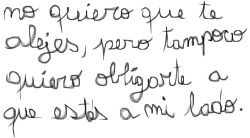 no quiero que te
alejes, pero tampoco
quiero obligarte a
que estés a mi lado.